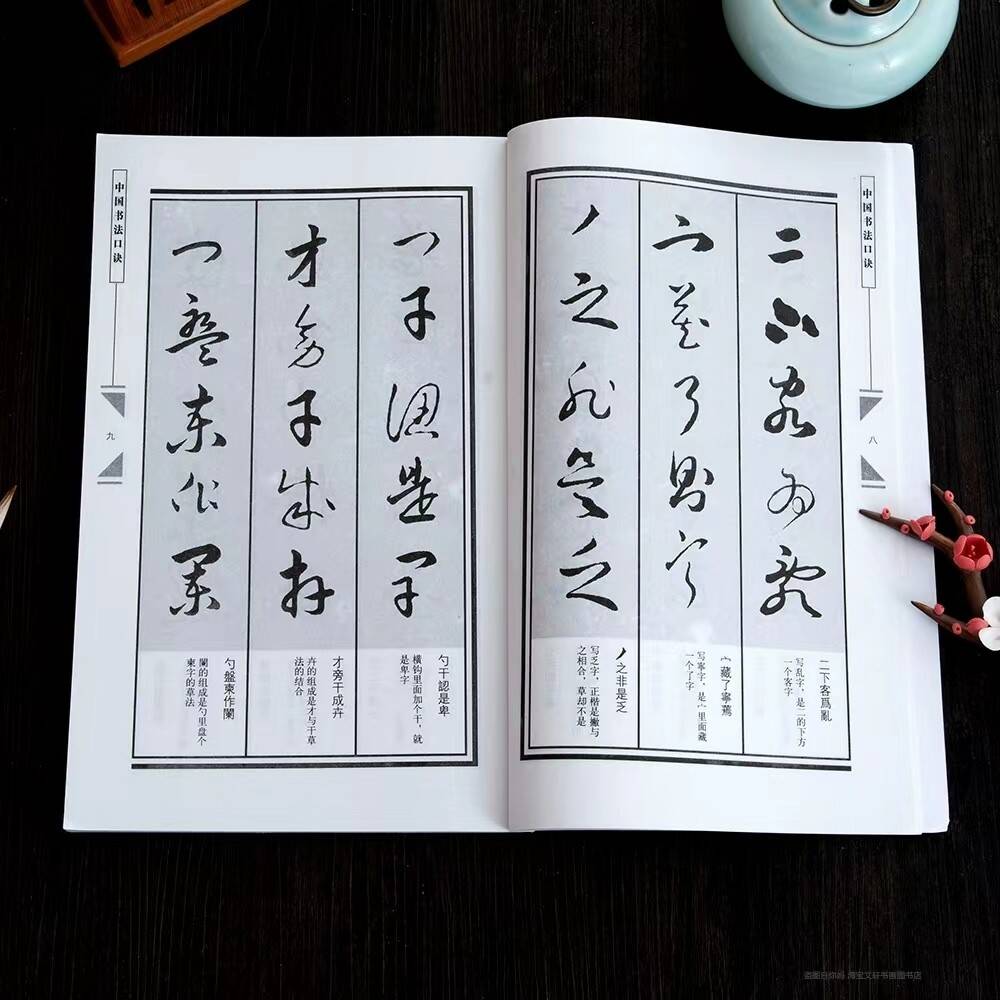 中国书法口诀
八
二下客爲亂
二下客爲亂
写乱字，是二的下方
一个客字
宀藏了寧蔫
写寧字，是宀里面藏
一个了字
丿之非是乏
丿之非是乏
写乏字，正楷是撇与
之相合，草却不是
中国书法口诀
九
勹干認是卑
横钩里面加个干，就
是卑字
才旁干成卉
卉的组成是才与干草
法的结合
勹盤柬作闌
闌的组成是勹里盘个
柬字的草法
淘宝文轩书画图书店